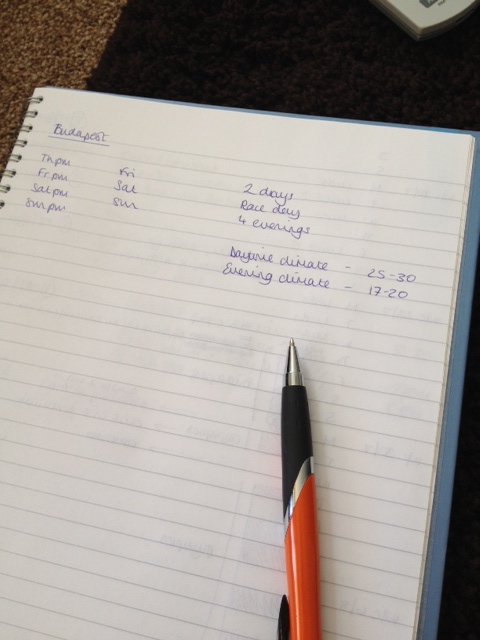 Budapest
Th pm
Fr pm Fri 2 days
Sat pm Sat Race day
Sun pm Sun 4 evenings
Daytime climate - 25-30
Evening climate - 17-20